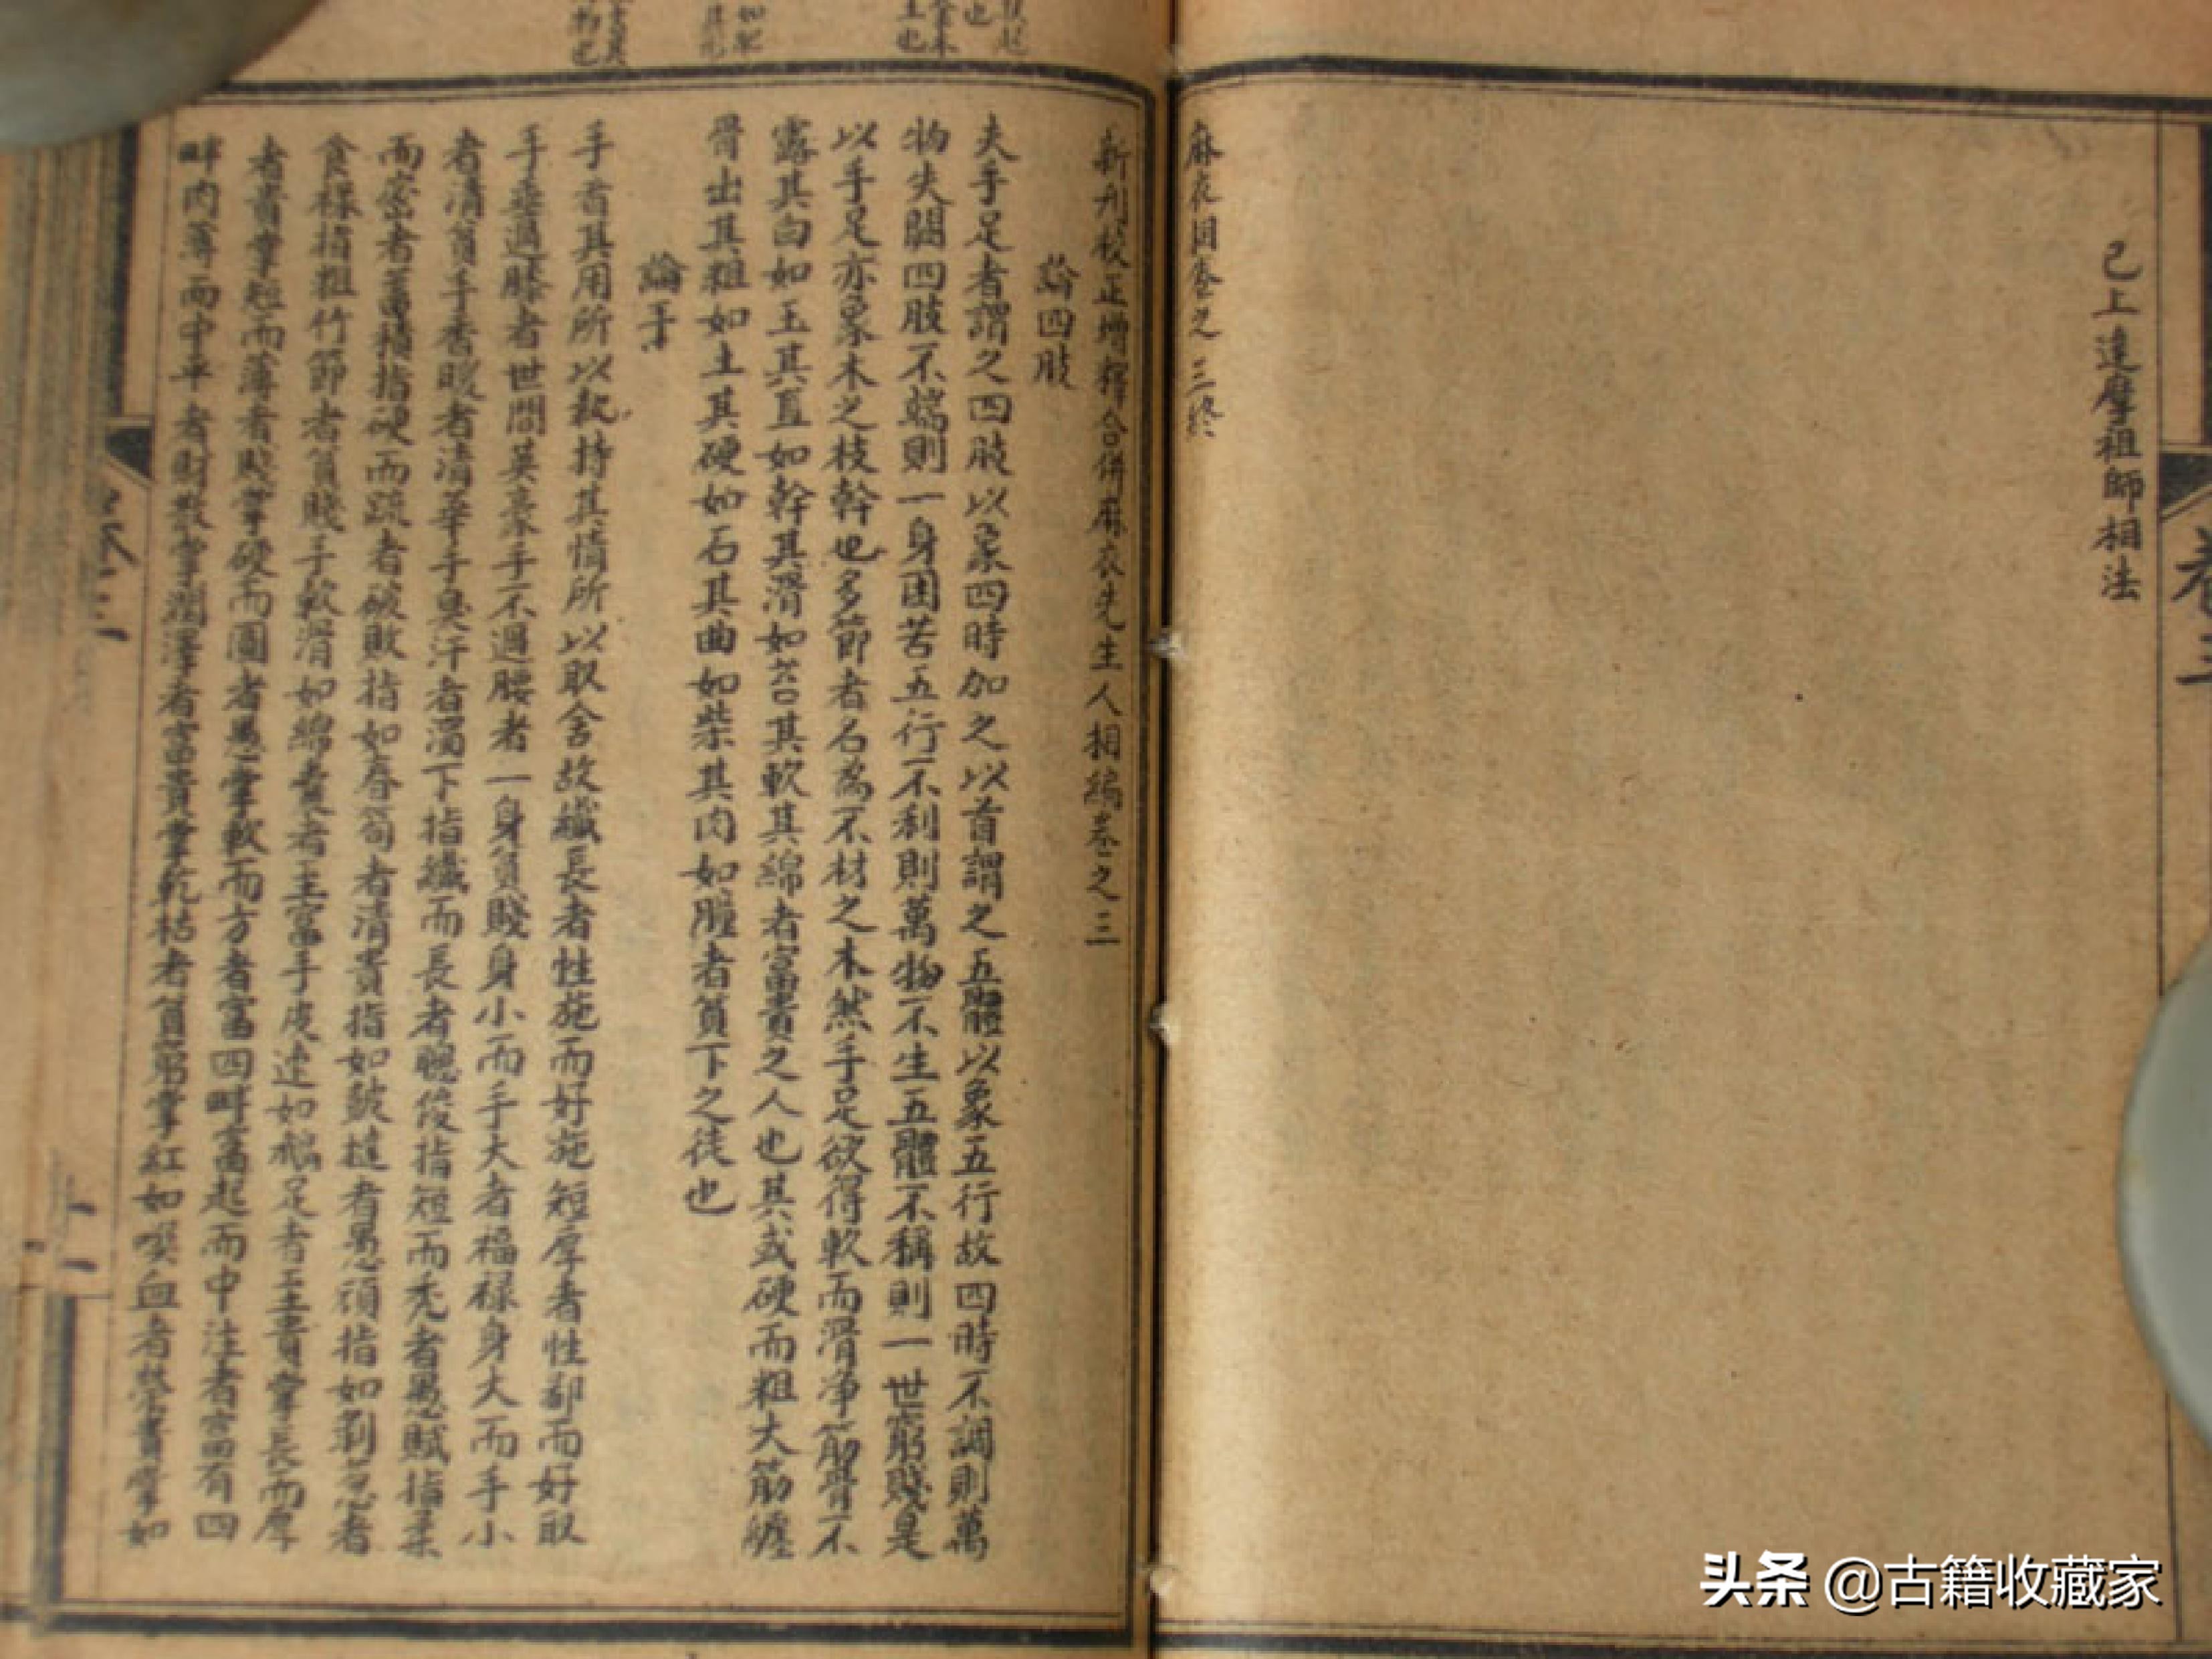 已上達摩祖師相法
麻衣相卷之三終
新刊校正增釋合併麻衣先生人相編卷之三
論四肢
夫手足者謂之四肢以象四時加之以首謂之五體以象五行故四時不調則萬
物失閼四肢不端則一身困苦五行不利則萬物不生五體不稱則一世窮賤是
以手足亦象木之枝幹也多節者名為不材之木然手足欲得軟而滑淨筋骨不
露其白如玉其直如幹其滑如苔其軟其綿者富貴之人也其或硬而粗大筋纏
骨出其粗如土其硬如石其曲如柴其肉如腫者貧下之徒也
論手
手者其用所以執持其情所以取舍故纖長者性施而好施短厚者性鄙而好取
手垂過膝者世間英豪手不過腰者一身貧賤身小而手大者福祿身大而手小
者清貧手香暖者清華手臭汗者濁下指纖而長者聰俊指短而禿者愚賤指柔
而密者蓄積指硬而疏者破敗指如春筍者清貴指如鼓槌者愚頑指如剝葱者
食祿指粗竹節者貧賤手軟滑如綿囊者主富手皮連如鵝足者主貴掌長而厚
者貴掌短而薄者賤掌硬而圓者愚掌軟而方者富四畔富起而中注者富有四
畔肉薄而中平者財散掌潤澤者富貴掌乾枯者貧窮掌紅如噀血者榮貴掌如
卷三
卷三
頭条 @古籍收藏家